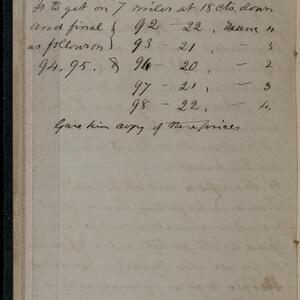 is to get on 7 miles at 18 cts. down
and final } 92 - 22, Leave 4
as follows on } 93 - 21, " 3
94, 95, & 96 - 20, " 2
97 - 21, " 3
98 - 22, " 4.
Gave him copy of these prices